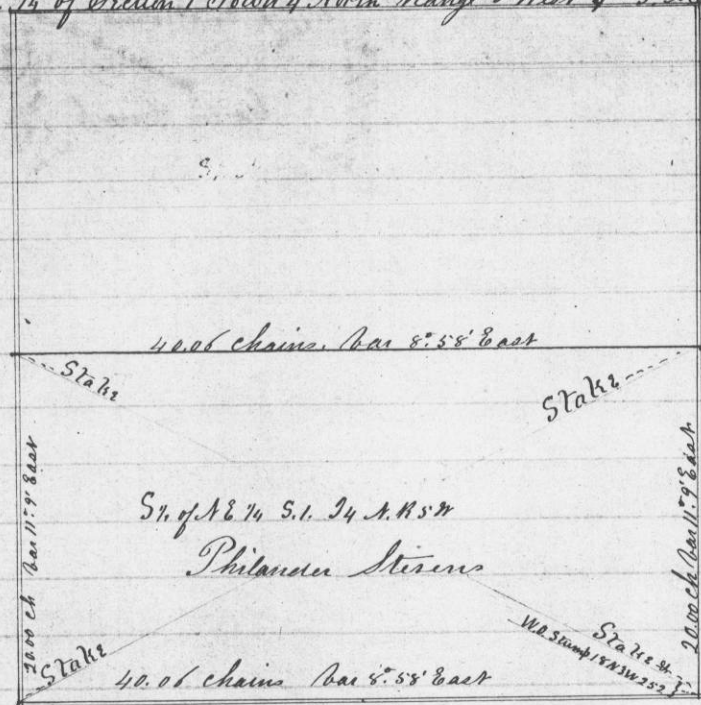 1/4 of Section 1 Town 4 North Range West of
S.
40.06 chains. Var 8° 58' East
Stake
Stake
20.00 ch Var 11° 9' East
20.00 ch Var 11° 9' East
S 1/2 of N E 1/4 S. 1. T 4 N. R 5 W
Philander Stevens
Stake
Stake
W.O. Stump 18 N 3 W 252
40.06 chains Var 8° 58' East